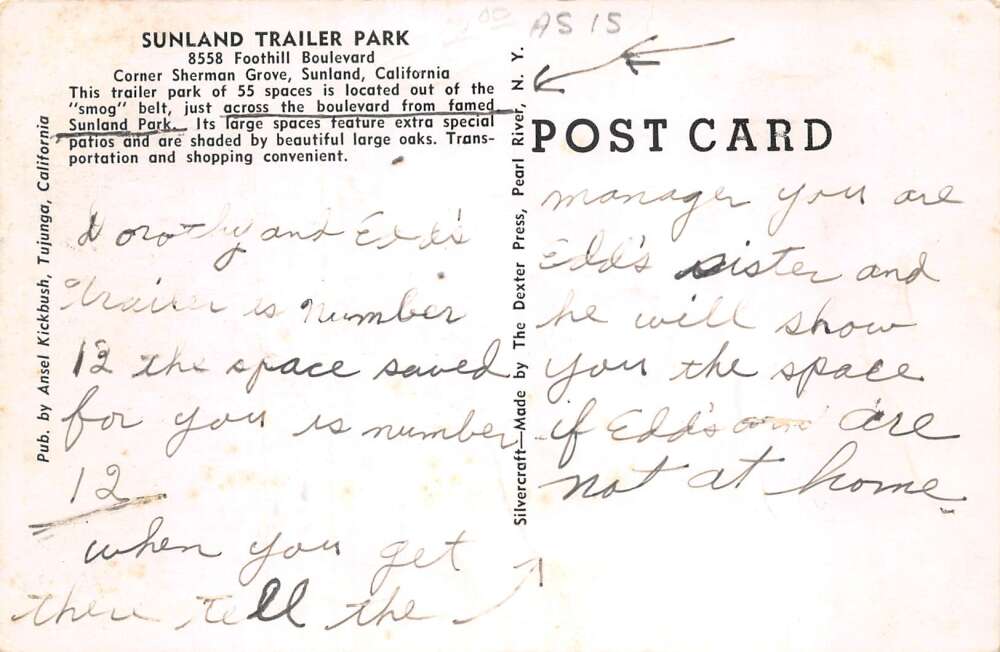 AS 15
SUNLAND TRAILER PARK
8558 Foothill Boulevard
Corner Sherman Grove, Sunland, California
This trailer park of 55 spaces is located out of the
"smog" belt, just across the boulevard from famed
Sunland Park. Its large spaces feature extra special
patios and are shaded by beautiful large oaks. Trans-
portation and shopping convenient.
Pub. by Ansel Kickbush, Tujunga, California
Dorothy and Edd's
trailer is number
13 the space saved
for you is number
12
when you get
there tell the
Silvercraft—Made by The Dexter Press, Pearl River, N. Y.
POST CARD
manager you are
Edd's sister and
he will show
you the space
if Edd's are
not at home